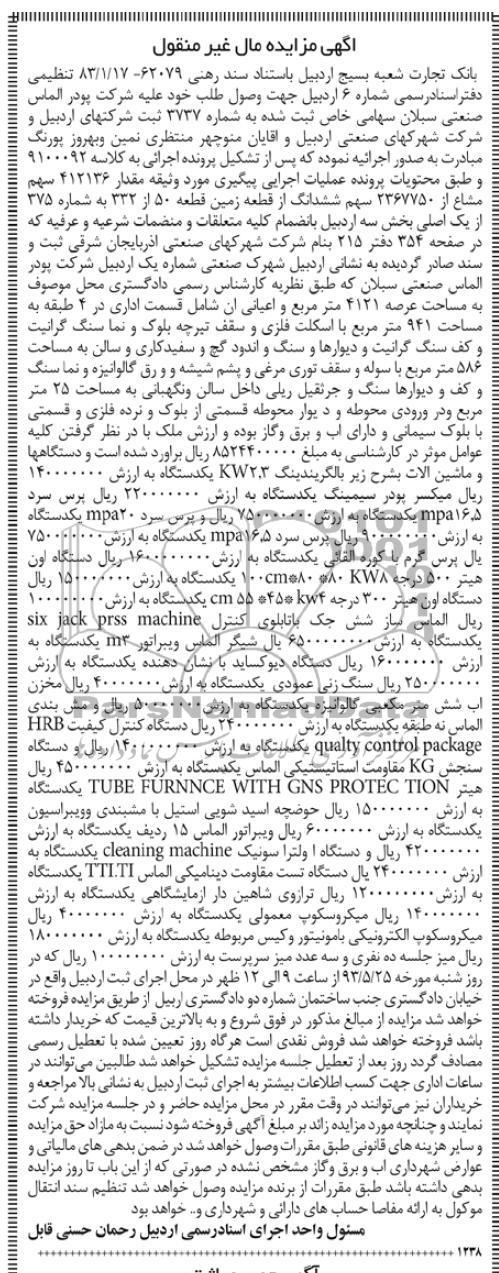 آگهی مزایده مال غیر منقول
بانک تجارت شعبه بسیج اردبیل باستناد سند رهنی ۶۲۰۷۹- ۸۳/۱/۱۷ تنظیمی
دفتراسنادرسمی شماره ۶ اردبیل جهت وصول طلب خود علیه شرکت پودر الماس
صنعتی سبلان سهامی خاص ثبت شده به شماره ۳۷۳۷ ثبت شرکتهای اردبیل و
شرکت شهرکهای صنعتی اردبیل و اقایان منوچهر منتظری نمین وبهروز پورنگ
مبادرت به صدور اجرائیه نموده که پس از تشکیل پرونده اجرائی به کلاسه ۹۱۰۰۰۹۲
و طبق محتویات پرونده عملیات اجرایی پیگیری مورد وثیقه مقدار ۴۱۲۱۳۶ سهم
مشاع از ۲۳۶۷۷۵۰ سهم ششدانگ از قطعه زمین قطعه ۵۰ از ۳۳۲ به شماره ۳۷۵
از یک اصلی بخش سه اردبیل بانضمام کلیه متعلقات و منضمات شرعیه و عرفیه که
در صفحه ۳۵۴ دفتر ۲۱۵ بنام شرکت شهرکهای صنعتی اذربایجان شرقی ثبت و
سند صادر گردیده به نشانی اردبیل شهرک صنعتی شماره یک اردبیل شرکت پودر
الماس صنعتی سبلان که طبق نظریه کارشناس رسمی دادگستری محل موصوف
به مساحت عرصه ۴۱۲۱ متر مربع و اعیانی ان شامل قسمت اداری در ۴ طبقه به
مساحت ۹۴۱ متر مربع با اسکلت فلزی و سقف تیرچه بلوک و نما سنگ گرانیت
و کف سنگ گرانیت و دیوارها و سنگ و اندود گچ و سفیدکاری و سالن به مساحت
۵۸۶ متر مربع با سوله و سقف توری مرغی و پشم شیشه و و رق گالوانیزه و نما سنگ
و کف و دیوارها سنگ و جرثقیل ریلی داخل سالن ونگهبانی به مساحت ۲۵ متر
مربع ودر ورودی محوطه و د یوار محوطه قسمتی از بلوک و نرده فلزی و قسمتی
با بلوک سیمانی و دارای اب و برق وگاز بوده و ارزش ملک با در نظر گرفتن کلیه
عوامل موثر در کارشناسی به مبلغ ۸۵۲۴۴۰۰۰۰۰ ریال براورد شده است و دستگاهها
و ماشین الات بشرح زیر بالگریندینگ KW۲,۳ یکدستگاه به ارزش ۱۴۰۰۰۰۰۰۰
ریال میکسر پودر سیمینگ یکدستگاه به ارزش ۲۲۰۰۰۰۰۰۰ ریال پرس سرد
mpa۱۶,۵ یکدستگاه به ارزش ۷۵۰۰۰۰۰۰۰ ریال و پرس سرد mpa۲۰ یکدستگاه
به ارزش ۹۰۰۰۰۰۰۰۰ ریال پرس سرد mpa۱۶,۵ یکدستگاه به ارزش ۷۵۰۰۰۰۰۰۰
یال پرس گرم با کوره القائی یکدستگاه به ارزش ۱۶۰۰۰۰۰۰۰۰ ریال دستگاه اون
هیتر ۵۰۰ درجه KW۸ ۸۰* ۸۰*۱۰۰cm یکدستگاه به ارزش ۱۵۰۰۰۰۰۰۰ ریال
دستگاه اون هیتر ۳۰۰ درجه kw۴ ۴۵* ۵۵* cm یکدستگاه به ارزش ۱۰۰۰۰۰۰۰۰
ریال الماس ساز شش جک باتابلوی کنترل six jack prss machine
یکدستگاه به ارزش ۶۵۰۰۰۰۰۰۰۰ یال شیگر الماس ویبراتور m۳ یکدستگاه به
ارزش ۱۶۰۰۰۰۰۰۰ ریال دستگاه دیوکساید با نشان دهنده یکدستگاه به ارزش
۲۵۰۰۰۰۰۰۰ ریال سنگ زنی عمودی یکدستگاه به ارزش ۴۰۰۰۰۰۰۰ ریال مخزن
اب شش متر مکعبی گالوانیزه یکدستگاه به ارزش ۵۰۰۰۰۰۰۰ ریال و مش بندی
الماس نه طبقه یکدستگاه به ارزش ۲۴۰۰۰۰۰۰۰ ریال دستگاه کنترل کیفیت HRB
qualty control package یکدستگاه به ارزش ۱۴۰۰۰۰۰۰۰۰ ریال و دستگاه
سنجش KG مقاومت استاتیستیکی الماس یکدستگاه به ارزش ۴۵۰۰۰۰۰۰۰ ریال
هیتر TUBE FURNNCE WITH GNS PROTEC TION یکدستگاه
به ارزش ۱۵۰۰۰۰۰۰۰ ریال حوضچه اسید شویی استیل با مشبندی وویبراسیون
یکدستگاه به ارزش ۶۰۰۰۰۰۰۰ ریال ویبراتور الماس ۱۵ ردیف یکدستگاه به ارزش
۴۲۰۰۰۰۰۰۰ ریال و دستگاه ا ولترا سونیک cleaning machine یکدستگاه به
ارزش ۲۴۰۰۰۰۰۰۰ یال دستگاه تست مقاومت دینامیکی الماس TTI.TI یکدستگاه
به ارزش ۱۲۰۰۰۰۰۰۰۰ ریال ترازوی شاهین دار ازمایشگاهی یکدستگاه به ارزش
۱۴۰۰۰۰۰۰۰ ریال میکروسکوپ معمولی یکدستگاه به ارزش ۴۰۰۰۰۰۰۰ ریال
میکروسکوپ الکترونیکی بامونیتور وکیس مربوطه یکدستگاه به ارزش ۱۸۰۰۰۰۰۰۰
ریال میز جلسه ده نفری و سه عدد میز سرپرست به ارزش ۱۰۰۰۰۰۰۰۰ ریال که در
روز شنبه مورخه ۹۳/۵/۲۵ از ساعت ۹ الی ۱۲ ظهر در محل اجرای ثبت اردبیل واقع در
خیابان دادگستری جنب ساختمان شماره دو دادگستری اربیل از طریق مزایده فروخته
خواهد شد مزایده از مبالغ مذکور در فوق شروع و به بالاترین قیمت که خریدار داشته
باشد فروخته خواهد شد فروش نقدی است هرگاه روز تعیین شده با تعطیل رسمی
مصادف گردد روز بعد از تعطیل جلسه مزایده تشکیل خواهد شد طالبین می‌توانند در
ساعات اداری جهت کسب اطلاعات بیشتر به اجرای ثبت اردبیل به نشانی بالا مراجعه و
خریداران نیز می‌توانند در وقت مقرر در محل مزایده حاضر و در جلسه مزایده شرکت
نمایند و چنانچه مورد مزایده زائد بر مبلغ آگهی فروخته شود نسبت به مازاد حق مزایده
و سایر هزینه های قانونی طبق مقررات وصول خواهد شد در ضمن بدهی های مالیاتی و
عوارض شهرداری اب و برق وگاز مشخص نشده در صورتی که از این باب تا روز مزایده
بدهی داشته باشد طبق مقررات از برنده مزایده وصول خواهد شد تنظیم سند انتقال
موکول به ارائه مفاصا حساب های دارائی و شهرداری و.. خواهد بود
مسئول واحد اجرای اسنادرسمی اردبیل رحمان حسنی قابل
۱۲۳۸